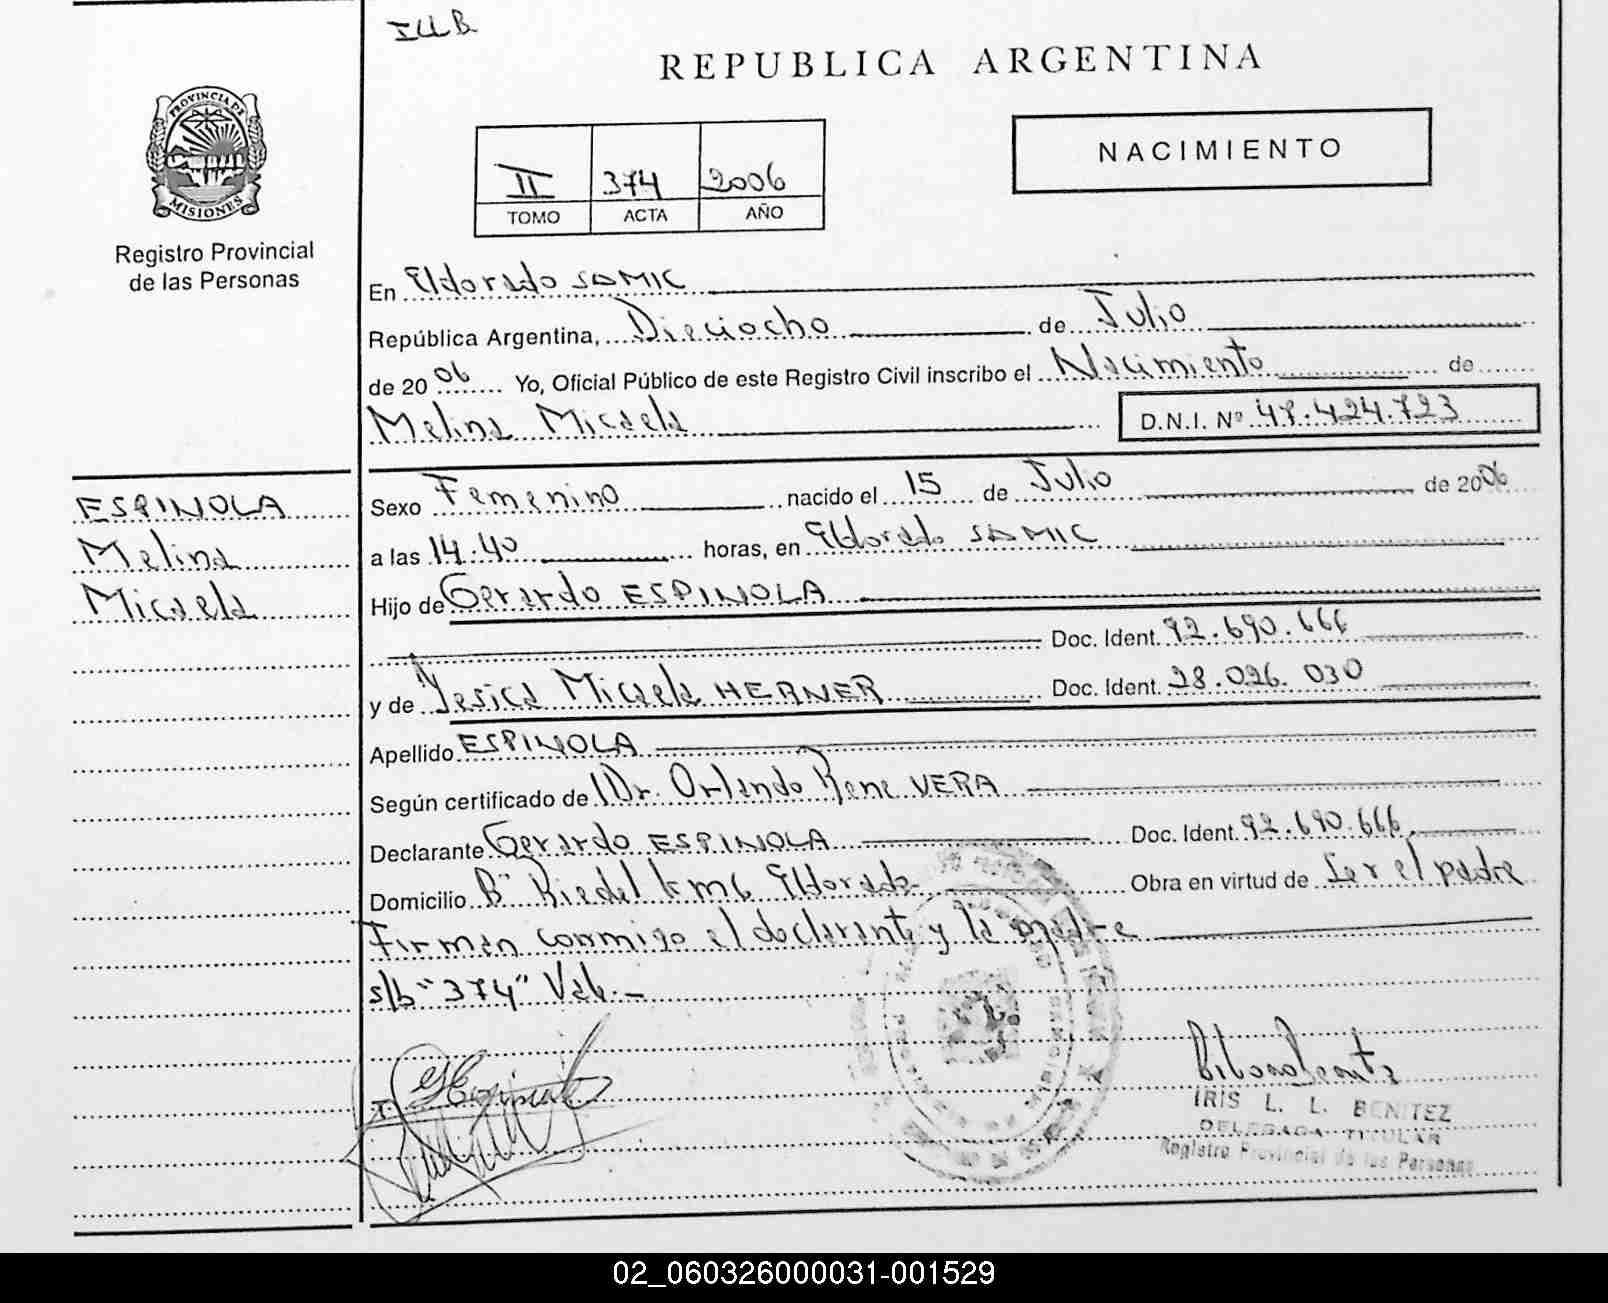 REPUBLICA ARGENTINA
PROVINCIA DE
MISIONES
Registro Provincial
de las Personas
II 374 2006
TOMO ACTA AÑO
NACIMIENTO
En Eldorado SAMIC
República Argentina, Dieciocho de Julio
de 2006 Yo, Oficial Público de este Registro Civil inscribo el Nacimiento de
Melina Micaela D.N.I. Nº 47.424.723
ESPINOLA
Melina
Micaela
Sexo Femenino nacido el 15 de Julio de 2006
a las 14:40 horas, en Eldorado SAMIC
Hijo de Gerardo ESPINOLA
Doc. Ident. 92.690.666
y de Yesica Micaela HERNER Doc. Ident. 28.026.030
Apellido ESPINOLA
Según certificado de Dr. Orlando Rene VERA
Declarante Gerardo ESPINOLA Doc. Ident. 92.690.666
Domicilio Bº Riedel km 6 Eldorado Obra en virtud de Ser el padre
Firman conmigo el declarante y la madre
s/b "374" Vale.-
IRIS L. L. BENITEZ
DELEGADA TITULAR
Registro Provincial de las Personas
02_060326000031-001529